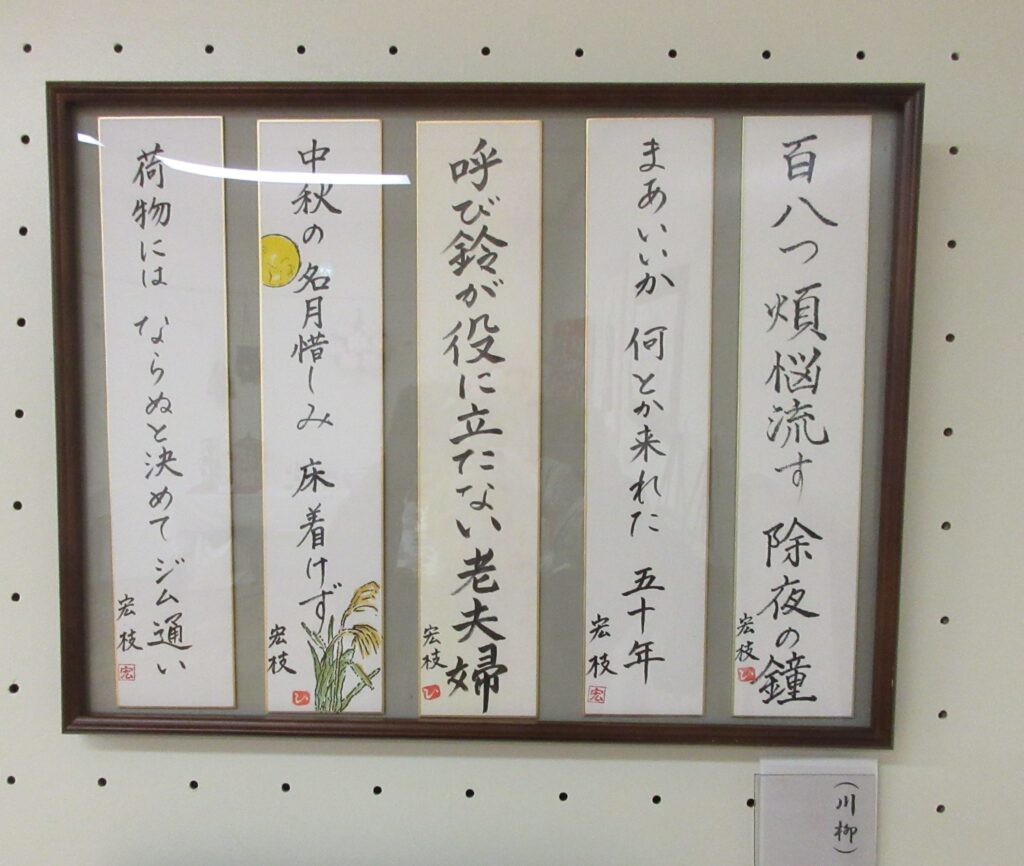 百八つ 煩悩流す 除夜の鐘
宏枝
まあいいか 何とか来れた 五十年
宏枝
宏
呼び鈴が役に立たない老夫婦
宏枝
ひ
中秋の 名月惜しみ 床着けず
宏枝
ひ
荷物には ならぬと決めて ジム通い
宏枝
宏
(川柳)